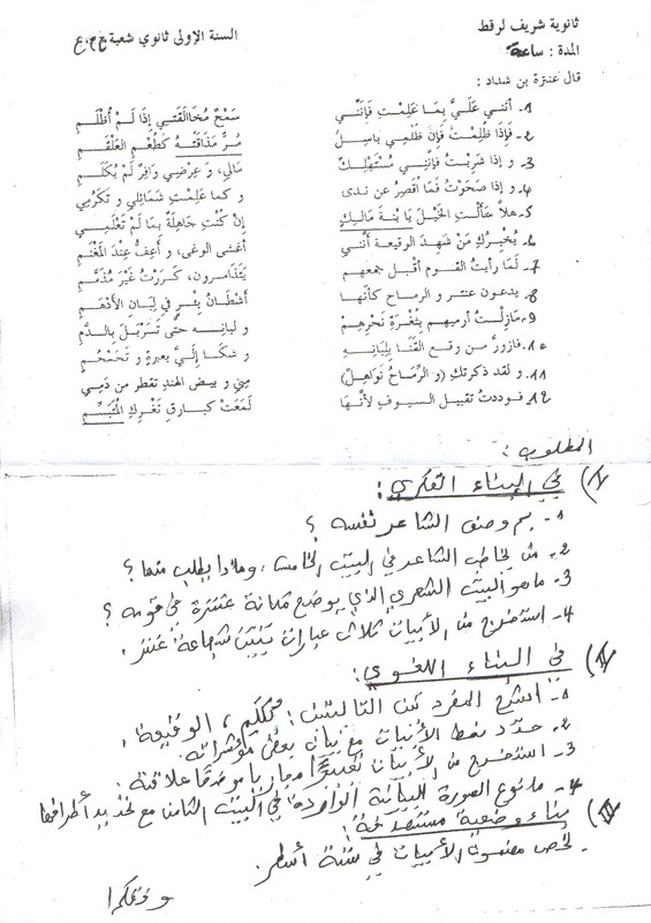 ثانوية شريف لرقط
السنة الاولى ثانوي شعبة ج م ع
المدة : ساعة
قال عنترة بن شداد :
1- أثني عَلَيَّ بِمَا عَلِمْتِ فَإِنَّنِي سَمْحٌ مُخَالَقَتِي إِذَا لَمْ أُظْلَمِ
2- فَإِذَا ظُلِمْتُ فَإِنَّ ظُلْمِي بَاسِلٌ مُرٌّ مَذَاقَتُهُ كَطَعْمِ العَلْقَمِ
3- و إذا شَرِبْتُ فَإِنَّنِي مُسْتَهْلِكٌ مَالِي، وَ عِرْضِي وَافِرٌ لَمْ يُكْلَمِ
4- و إذا صَحَوْتُ فَمَا أُقَصِرُ عن ندى و كما عَلِمْتِ شَمَائِلِي وَ تَكَرُمِي
5- هلاَّ سَأَلْتِ الخَيْلَ يَا بْنَةَ مَالِكٍ إِنْ كُنْتِ جَاهِلَةً بِمَا لَمْ تَعْلَمِي
6- يُخْبِرْكِ مَنْ شَهِدَ الوقيعة أَنَّنِي أغشى الوغى، و أَعِفُّ عِنْدَ المَغْنَمِ
7- لَمَا رأيتُ القوم أقْبل جمعهم يَتَذَامرون، كَرَرْتُ غَيْرَ مُذَمَّمِ
8- يدعون عنتر و الرماح كأنّها أَشْطَانُ بِئْرٍ فِي لِبَانِ الأَدْهَمِ
9- مَازِلْتُ أرميهم بِثُغْرَةِ نَحْرِهِمْ و لبانه حتَّى تَسَرْبَلَ بالدَّمِ
10- فازورَّ من وقع القَنَا بِلِبَانِهِ و شكا إِلَيَّ بعبرةٍ و تَحَمْحُمِ
11- و لقد ذكرتكِ (و الرِّمَاحُ نَوَاهِلٌ) مِنِي و بيض الهندِ تقطر من دَمِي
12- فوددتُ تقبيل السيوف لأنّهَا لَمَعَتْ كبارق ثَغْرِكِ المُتَبَسِّمِ
المطلوب :
I) في البناء الفكري :
1- بم وصف الشاعر نفسه ؟
2- من يخاطب الشاعر في البيت الخامس، وماذا يطلب منها ؟
3- ماهو البيت الشعري الذي يوضح مكانة عنترة في قومه ؟
4- استخرج من الأبيات ثلاث عبارات تبين شجاعة عنتر .
II) في البناء اللغوي :
1- اشرح المفردتين التاليتين : ، الوقيعة .
2- حدّد نمط الأبيات مع بيان بعض مؤشراته.
3- استخرج من الأبيات تعبيرا مجازيا موضحا علاقته .
4- ما نوع الصورة البيانية الواردة في البيت الثامن مع تحديد أطرافها
III) بناء وضعية مستهدفة :
لخص مضمون الأبيات في ستة أسطر.
وفقكم ا